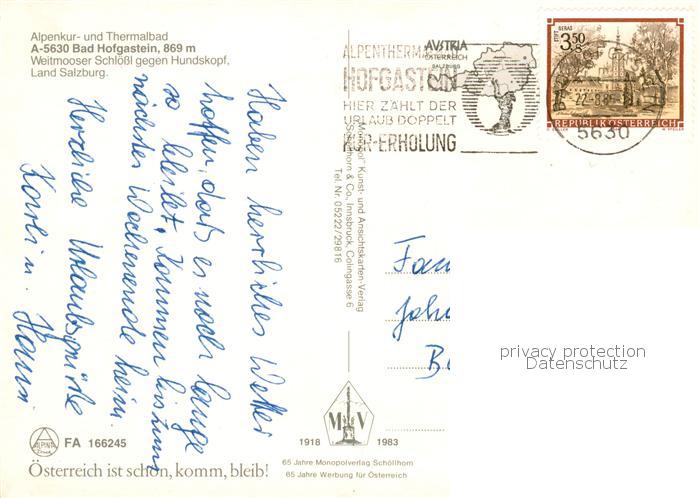 Alpenkur- und Thermalbad
A-5630 Bad Hofgastein, 869 m
Weitmooser Schlößl gegen Hundskopf,
Land Salzburg.
Haben herrliches Wetter
hoffen, daß es noch lange
so bleibt. Kommen bis zum
nächsten Wochenende heim.
Herzliche Urlaubsgrüße
Karli u. Hanni
FA 166245
Österreich ist schön, komm, bleib!
"Monopol" Kunst- und Ansichtskarten-Verlag
Schöllhorn & Co., Innsbruck, Colingasse 6
Tel. Nr. 05222/29816
M V
1918 1983
65 Jahre Monopolverlag Schöllhorn
65 Jahre Werbung für Österreich
ALPENTHERMALBAD
HOFGASTEIN
HIER ZÄHLT DER
URLAUB DOPPELT
KUR-ERHOLUNG
AUSTRIA
ÖSTERREICH
SALZBURG
STIFT GERAS
3.50
REPUBLIK ÖSTERREICH
5630
Fam
Joh
privacy protection
Datenschutz